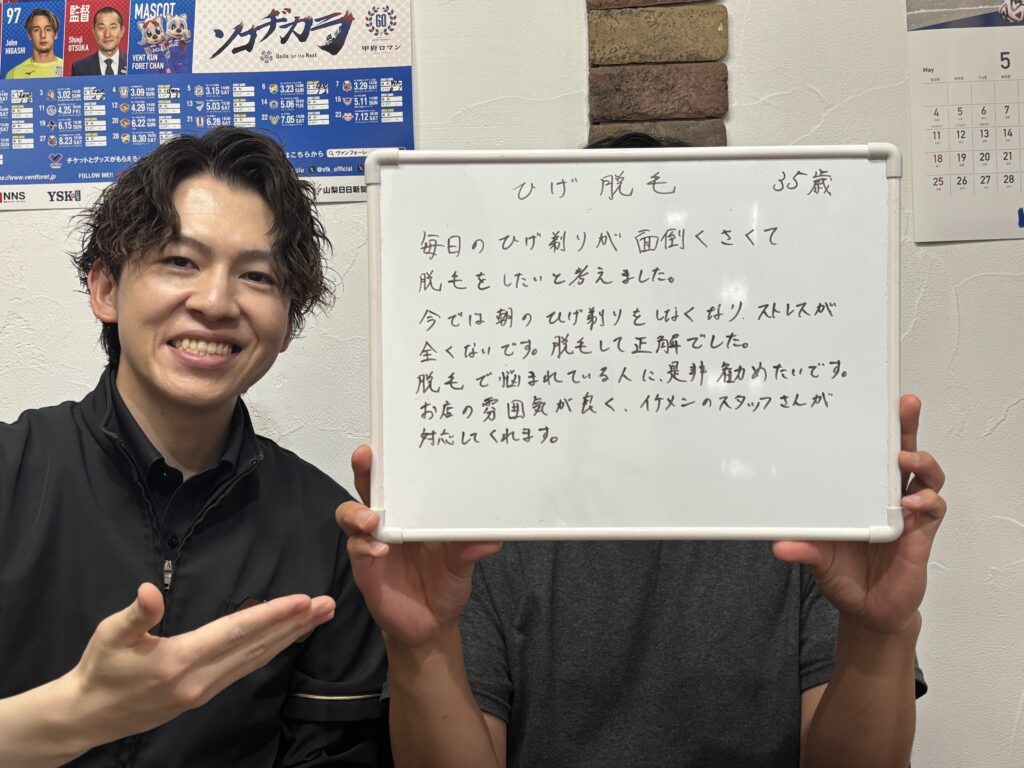 97
John
HIGASHI
監督
Shinji
OTSUKA
MASCOT
VENT KUN
FORET CHAN
ソコヂカラ
Unite for the Next
甲府ロマン
3.02
3.09
3.15
3.23
3.29
4.25
4.29
5.03
5.06
5.11
6.15
6.22
6.28
7.05
7.12
8.23
8.30
チケットとグッズがもらえる
FOLLOW ME!!
はこちらから
ヴァンフォーレ
vfk_official
NNS
YSK
山梨日日新聞
May
5
SUN
MON
TUE
WED
4 5 6 7
11 12 13 14
18 19 20 21
25 26 27 28
ひげ 脱毛 35歳
毎日のひげ剃りが面倒くさくて
脱毛をしたいと考えました。
今では朝のひげ剃りをしなくなり、ストレスが
全くないです。脱毛して正解でした。
脱毛で悩まれている人に、是非勧めたいです。
お店の雰囲気が良く、イケメンのスタッフさんが
対応してくれます。